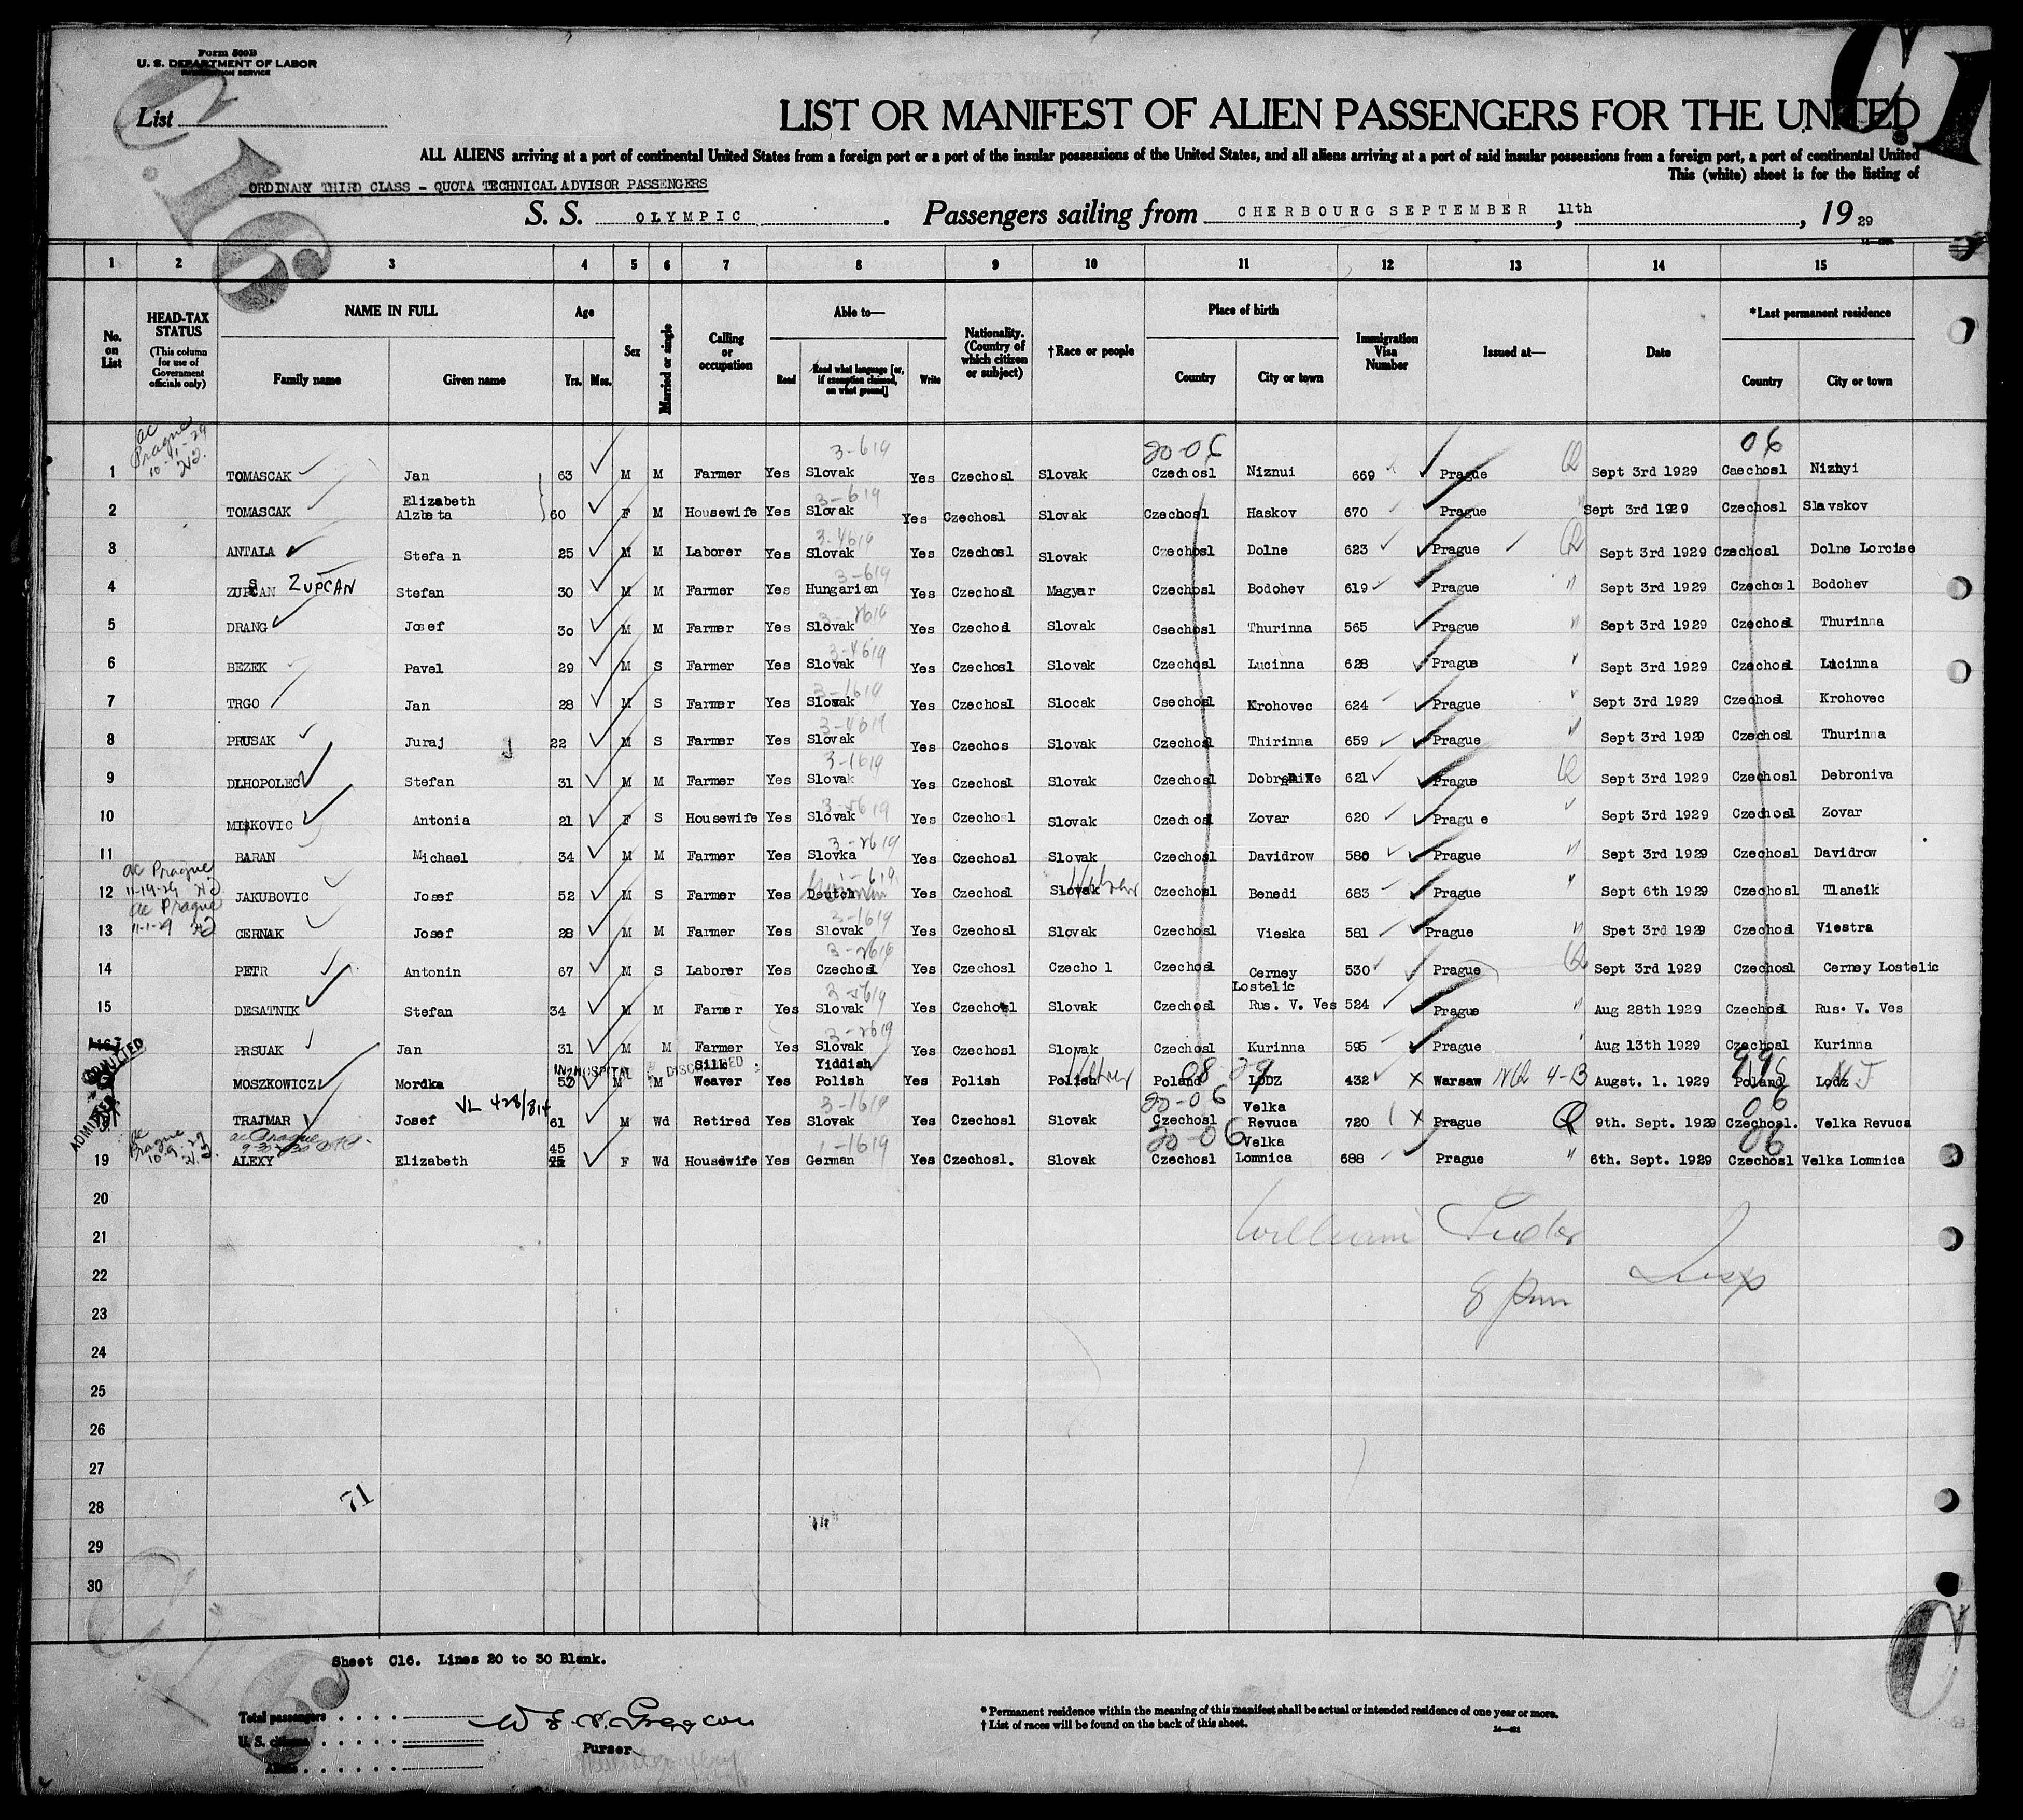 Form 500B
U. S. DEPARTMENT OF LABOR
IMMIGRATION SERVICE
C.16
C1
List
LIST OR MANIFEST OF ALIEN PASSENGERS FOR THE UNITED
ALL ALIENS arriving at a port of continental United States from a foreign port or a port of the insular possessions of the United States, and all aliens arriving at a port of said insular possessions from a foreign port, a port of continental United
This (white) sheet is for the listing of
ORDINARY THIRD CLASS - QUOTA TECHNICAL ADVISOR PASSENGERS
S. S. OLYMPIC. Passengers sailing from CHERBOURG SEPTEMBER 11th, 1929
1 2 3 4 5 6 7 8 9 10 11 12 13 14 15
No. on List
HEAD-TAX STATUS (This column for use of Government officials only)
NAME IN FULL Family name Given name
Age Yrs. Mos.
Sex
Married or single
Calling or occupation
Able to— Read Read what language [or, if exemption claimed, on what ground] Write
Nationality. (Country of which citizen or subject)
†Race or people
Place of birth Country City or town
Immigration Visa Number
Issued at—
Date
*Last permanent residence Country City or town
ac Prague
3-619 20-06 06
1 TOMASCAK Jan 63 M M Farmer Yes Slovak Yes Czechosl Slovak Czechosl Niznui 669 Prague Sept 3rd 1929 Caechosl Niznyi
3-619
2 TOMASCAK Elizabeth Alzbeta 60 F M Housewife Yes Slovak Yes Czechosl Slovak Czechosl Haskov 670 Prague Sept 3rd 1929 Czechosl Slavskov
3-4619
3 ANTALA Stefan 25 M M Laborer Yes Slovak Yes Czechosl Slovak Czechosl Dolne 623 Prague Sept 3rd 1929 Czechosl Dolne Lorcise
3-619
4 ZUPCAN ZUPCAN Stefan 30 M M Farmer Yes Hungarian Yes Czechosl Magyar Czechosl Bodohev 619 Prague Sept 3rd 1929 Czechosl Bodohev
5 DRANG Josef 30 M M Farmer Yes Slovak Yes Czechosl Slovak Csechosl Thurinna 565 Prague Sept 3rd 1929 Czechosl Thurinna
3-4619
6 BEZEK Pavel 29 M S Farmer Yes Slovak Yes Czechosl Slovak Czechosl Lucinna 628 Prague Sept 3rd 1929 Czechosl Lucinna
3-1619
7 TRGO Jan 28 M S Farmer Yes Slovak Yes Czechosl Slocak Csechosl Krohovec 624 Prague Sept 3rd 1929 Czechosl Krohovec
3-4619
8 PRUSAK Juraj J 22 M S Farmer Yes Slovak Yes Czechos Slovak Czechosl Thirinna 659 Prague Sept 3rd 1929 Czechosl Thurinna
3-1619
9 DLHOPOLEC Stefan 31 M M Farmer Yes Slovak Yes Czechosl Slovak Czechosl 621 Prague Sept 3rd 1929 Czechosl Debroniva
10 MISKOVIC Antonia 21 F S Housewife Yes Slovak Yes Czechosl Slovak Czechosl Zovar 620 Prague Sept 3rd 1929 Czechosl Zovar
3-2619
11 BARAN Michael 34 M M Farmer Yes Slovka Yes Czechosl Slovak Czechosl Davidrow 580 Prague Sept 3rd 1929 Czechosl Davidrow
ac Prague 11-19-29
12 JAKUBOVIC Josef 52 M S Farmer Yes Deutch German Yes Czechosl Slovak Hebrew Czechosl Benedi 683 Prague Sept 6th 1929 Czechosl Tlaneik
ac Prague 11-1-29 3-1619
13 CERNAK Josef 28 M M Farmer Yes Slovak Yes Czechosl Slovak Czechosl Vieska 581 Prague Spet 3rd 1929 Czechosl Viestra
3-2619
14 PETR Antonin 67 M S Laborer Yes Czechosl Yes Czechosl Czecho l Czechosl Cerney Lostelic 530 Prague Sept 3rd 1929 Czechosl Cerney Lostelic
15 DESATNIK Stefan 34 M M Farmer Yes Slovak Yes Czechosl Slovak Czechosl Rus. V. Ves 524 Prague Aug 28th 1929 Czechosl Rus. V. Ves
3-2619
PRSUAK Jan 31 M M Farmer Yes Slovak Yes Czechosl Slovak Czechosl Kurinna 595 Prague Aug 13th 1929 Czechosl Kurinna
ADMITTED IN HOSPITAL DISCHARGED
MOSZKOWICZ Mordka M M Silk Weaver Yes Yiddish Polish Yes Polish Polish Hebrew Poland LODZ 432 Warsaw NQ 4-13 Augst. 1. 1929 Poland Lodz
ADMITTED VL 428/814 3-1619 20-06 06
TRAJMAR Josef 61 M Wd Retired Yes Slovak Yes Czechosl Slovak Czechosl Velka Revuca 720 Prague 9th. Sept. 1929 Czechosl. Velka Revuca
ac Prague ac Prague 1-1619 20-06 06
19 ALEXY Elizabeth 45 F Wd Housewife Yes German Yes Czechosl. Slovak Czechosl Velka Lomnica 688 Prague 6th. Sept. 1929 Czechosl Velka Lomnica
20
21 William
22
23 8 pm
24
25
26
27
28 71
29
30
Sheet C16. Lines 20 to 30 Blank.
Total passengers
U. S. citizens
Aliens
Purser
* Permanent residence within the meaning of this manifest shall be actual or intended residence of one year or more.
† List of races will be found on the back of this sheet.
C